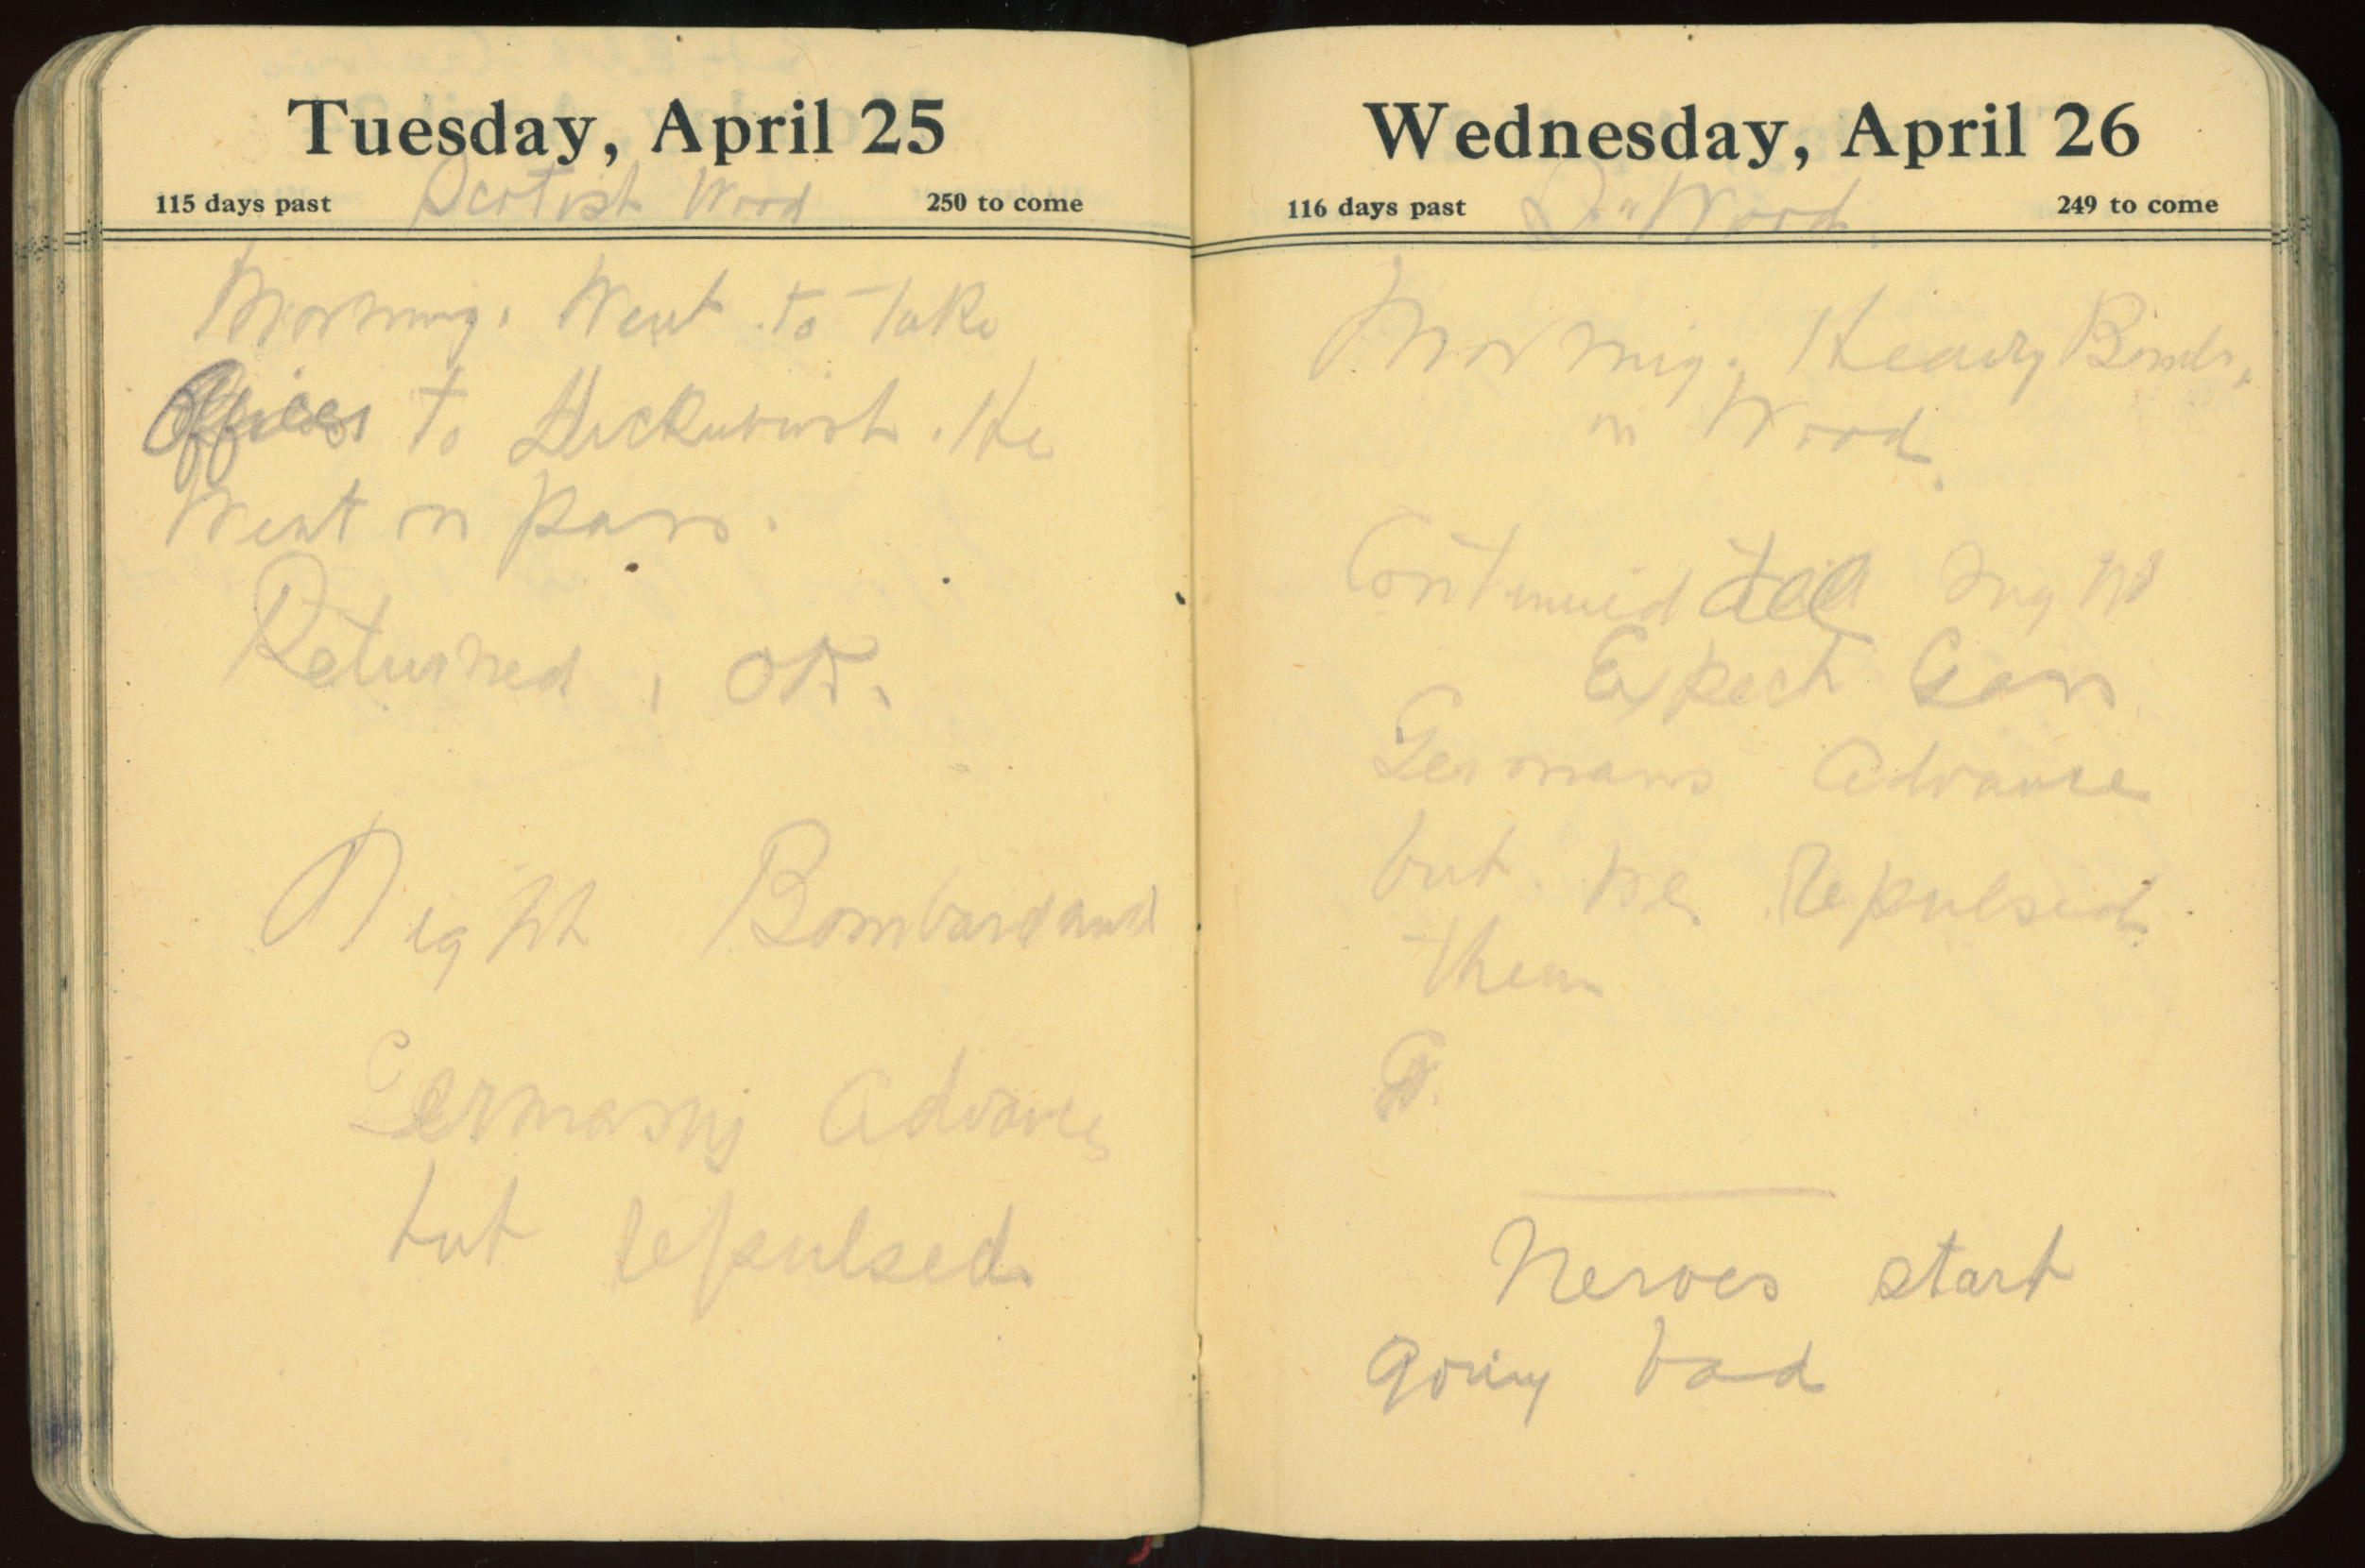 Tuesday, April 25
115 days past Scotish Wood 250 to come
Morning. Went to Take
Officer to . He
Went on Pass.
Returned, OK.
Night Bombardand
Germany Advance
but repulsed.
Wednesday, April 26
116 days past D." Wood. 249 to come
Morning. Heavy Bomb.
in Wood.
Continued till
Expect Gass
Germans Advance
but we repulsed
them
G.
Nerves start
going bad